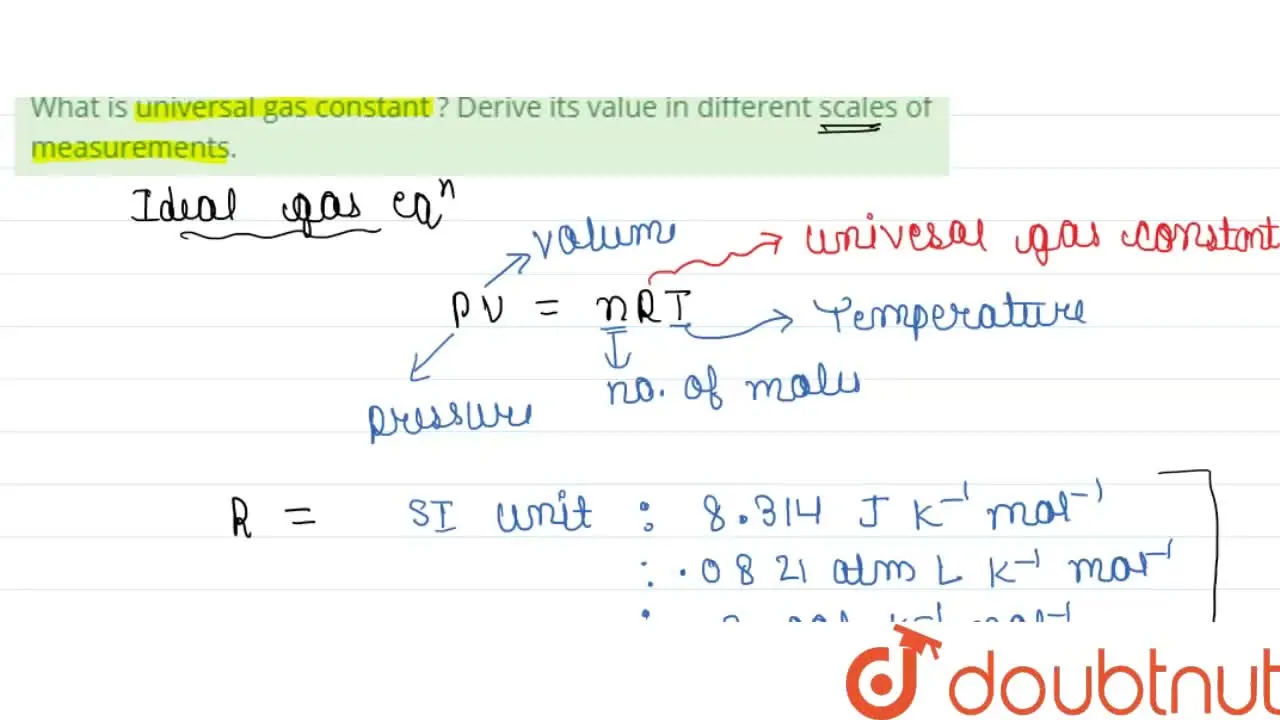 What is universal gas constant ? Derive its value in different scales of
measurements.
Ideal gas eqⁿ
volume
univesal gas constant
PV = nRT
Temperature
no. of moles
pressure
R = SI unit : 8.314 J K⁻¹ mol⁻¹
: .0821 atm L K⁻¹ mol⁻¹
:
doubtnut